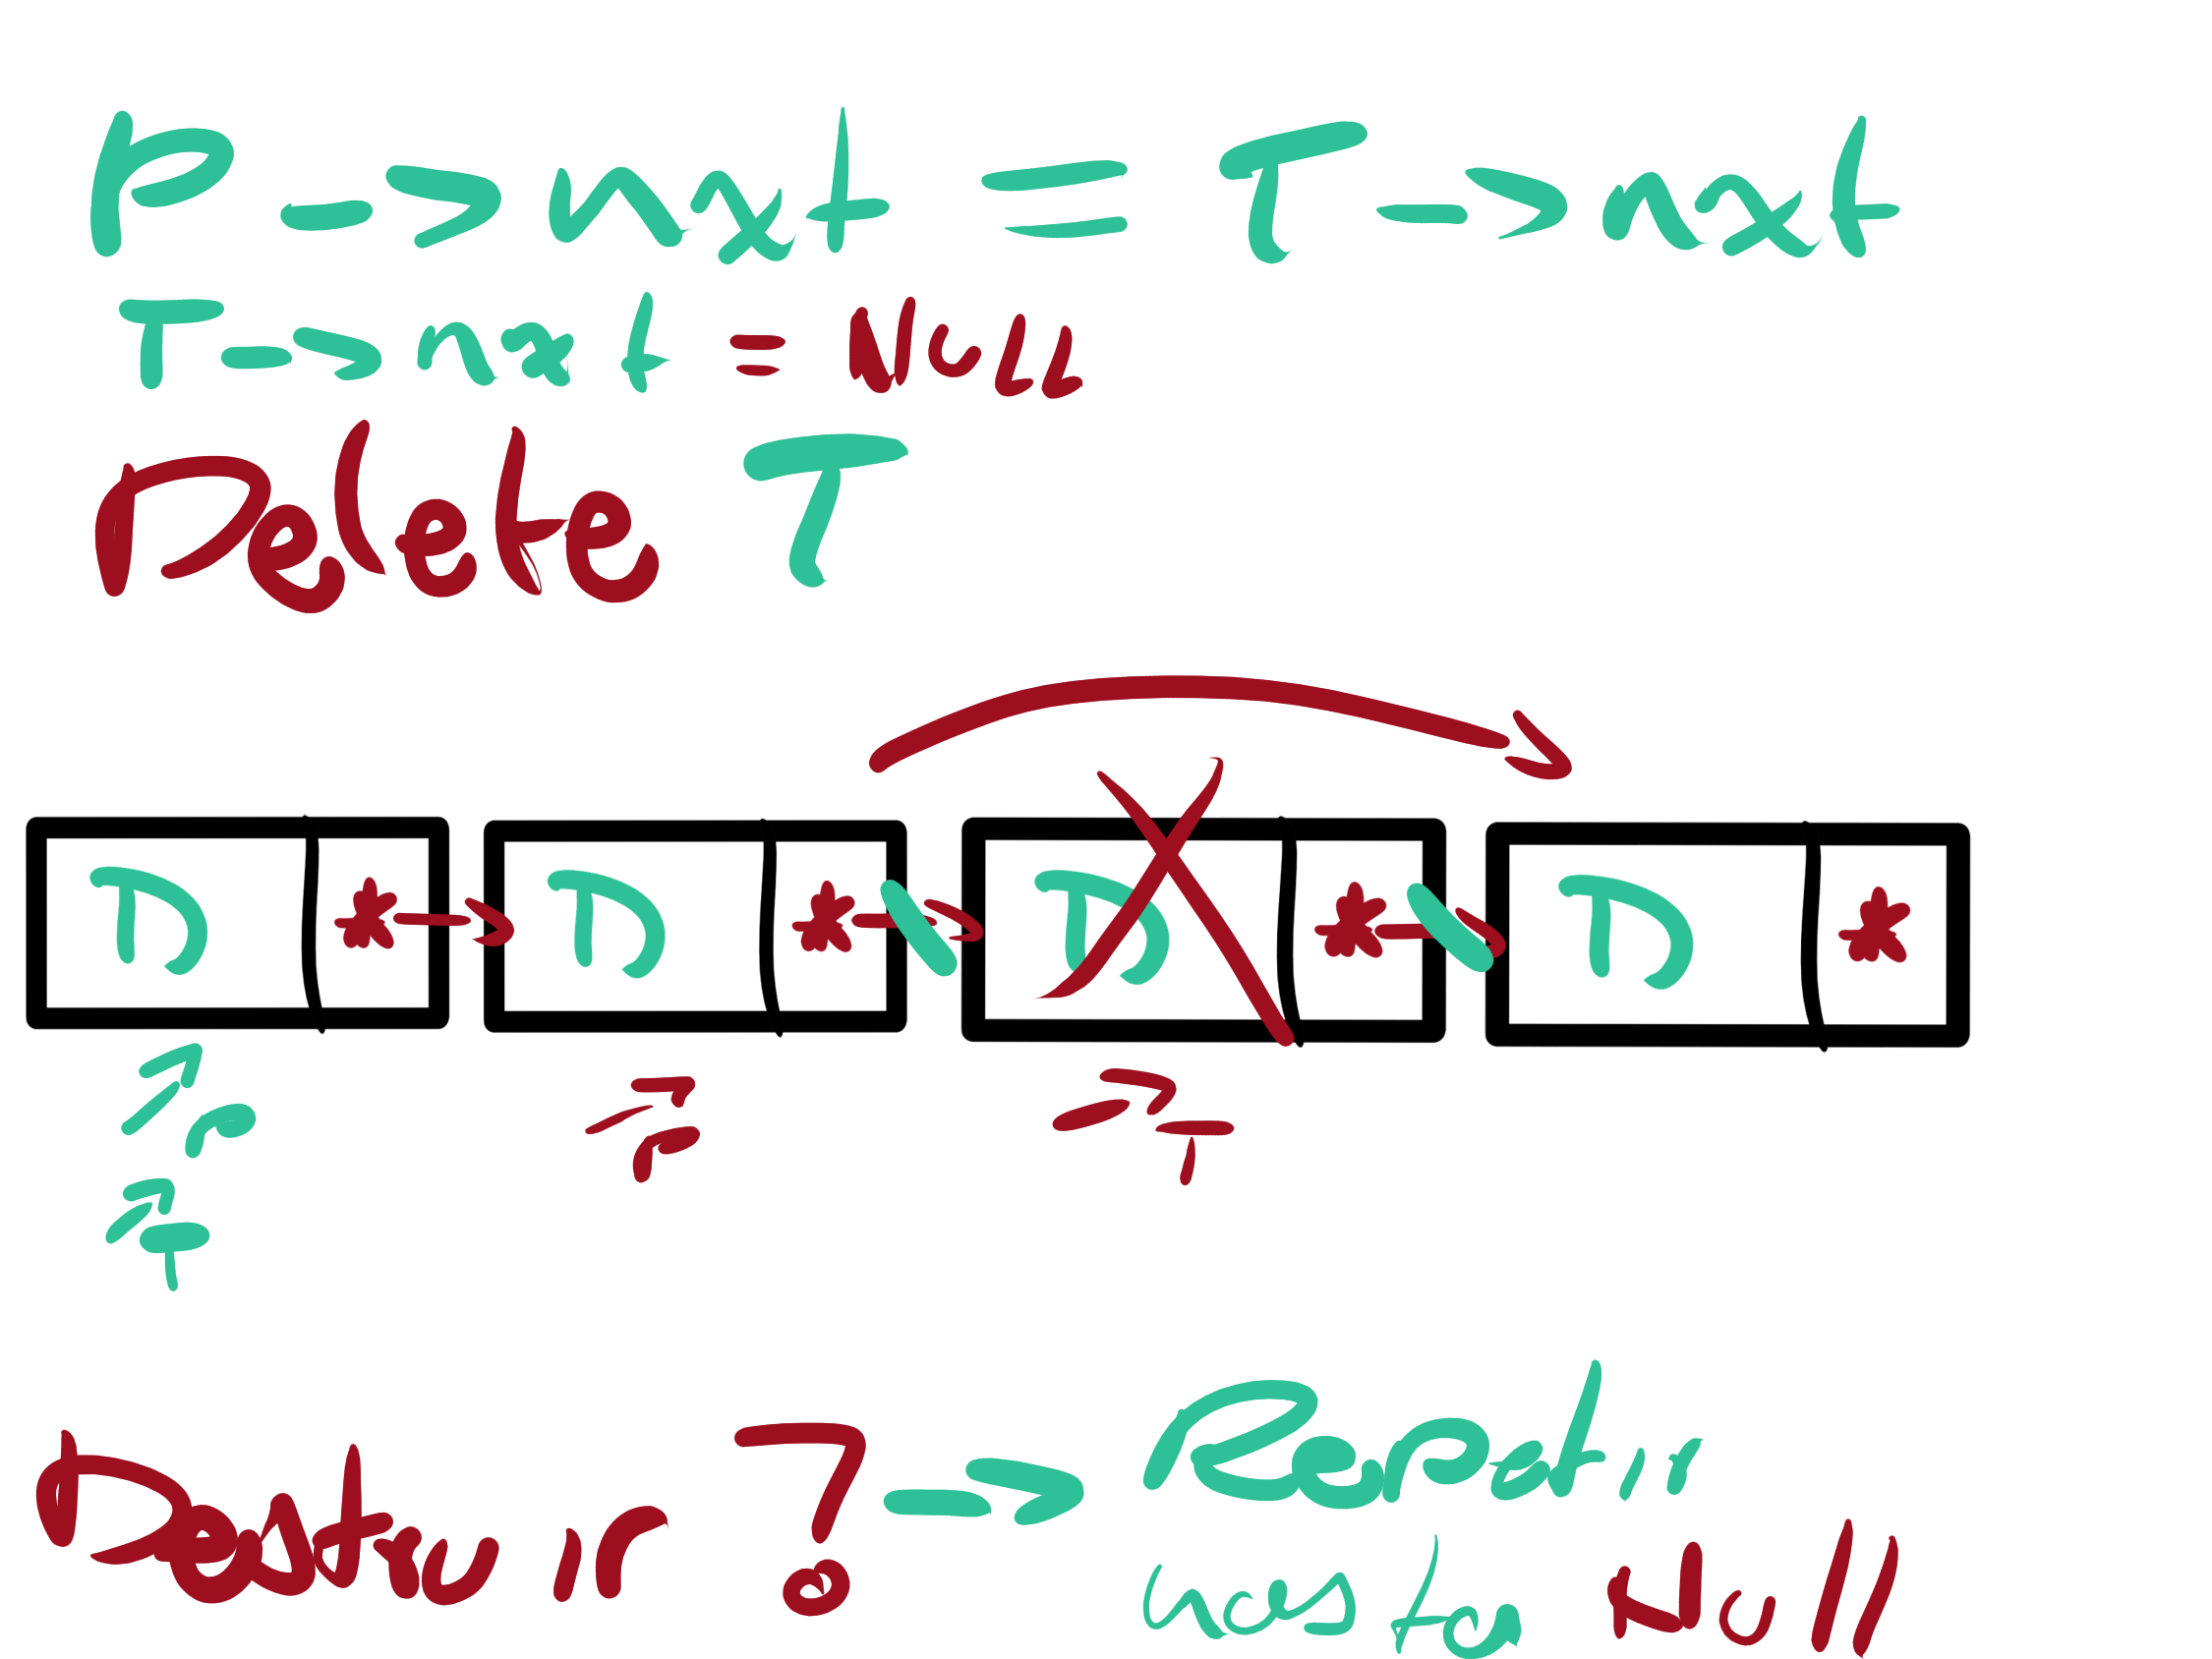 P -> nxt = T -> nxt
T -> nxt = NULL
Delete T
D * -> D * -> D * -> D *
P P T
T
Destruir ? => Repetir
hasta Null